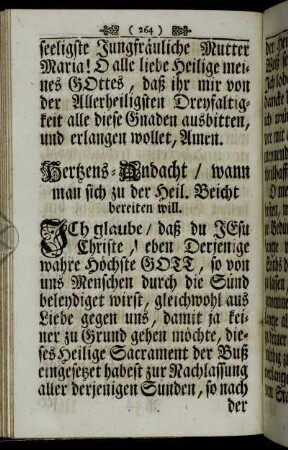 ( 264 )
seeligste Jungfräuliche Mutter
Maria! O alle liebe Heilige mei-
nes GOttes, daß ihr mir von
der Allerheiligsten Dreyfaltig-
keit alle diese Gnaden ausbitten,
und erlangen wollet, Amen.
Hertzens-Andacht / wann
man sich zu der Heil. Beicht
bereiten will.
ICh glaube / daß du JEsu
Christe / eben Derjenige
wahre Höchste GOTT, so von
uns Menschen durch die Sünd
beleydiget wirst, gleichwohl aus
Liebe gegen uns, damit ja kei-
ner zu Grund gehen möchte, die-
ses Heilige Sacrament der Buß
eingesetzet habest zur Nachlassung
aller derjenigen Sünden, so nach
der